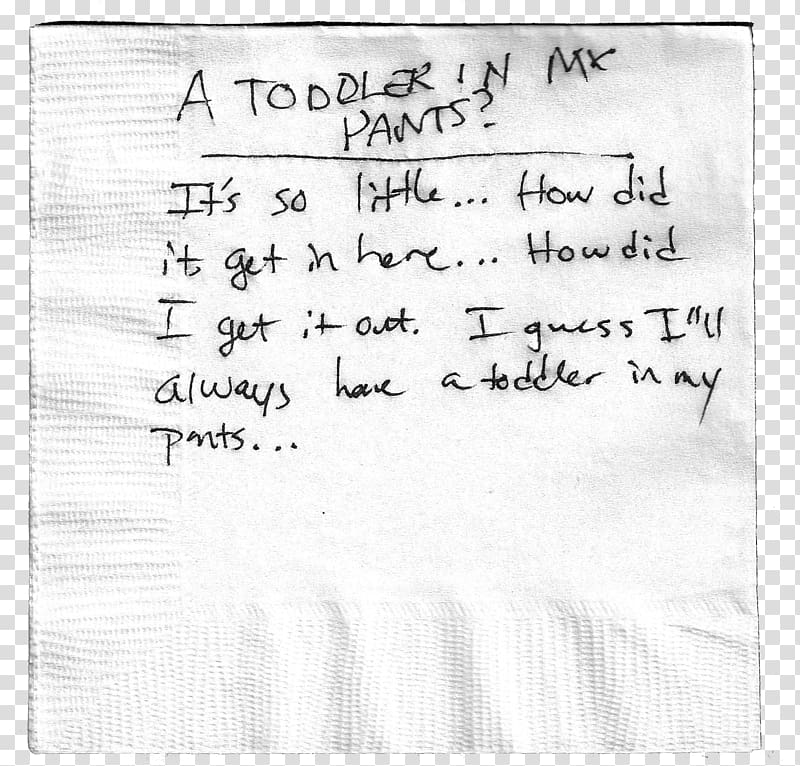 A TODDLER IN MY
PANTS?
It's so little... How did
it get in here... How did
I get it out. I guess I"ll
always have a toddler in my
pants...